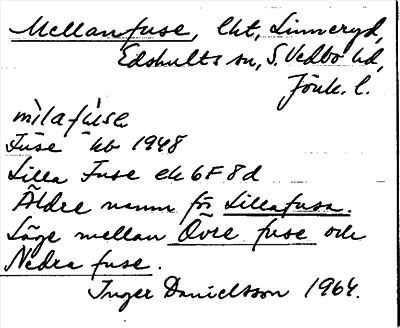 Mellanfuse, lht, Linneryd,
Edshults sn, S. Vedbo hd,
Jönk. l.
mìlafùse
Fuse kb 1948
Lilla Fuse ek 6F 8d
Äldre namn för Lillafusa.
Läge mellan Övre fuse och
Nedra fuse.
Inger Danielsson 1964.